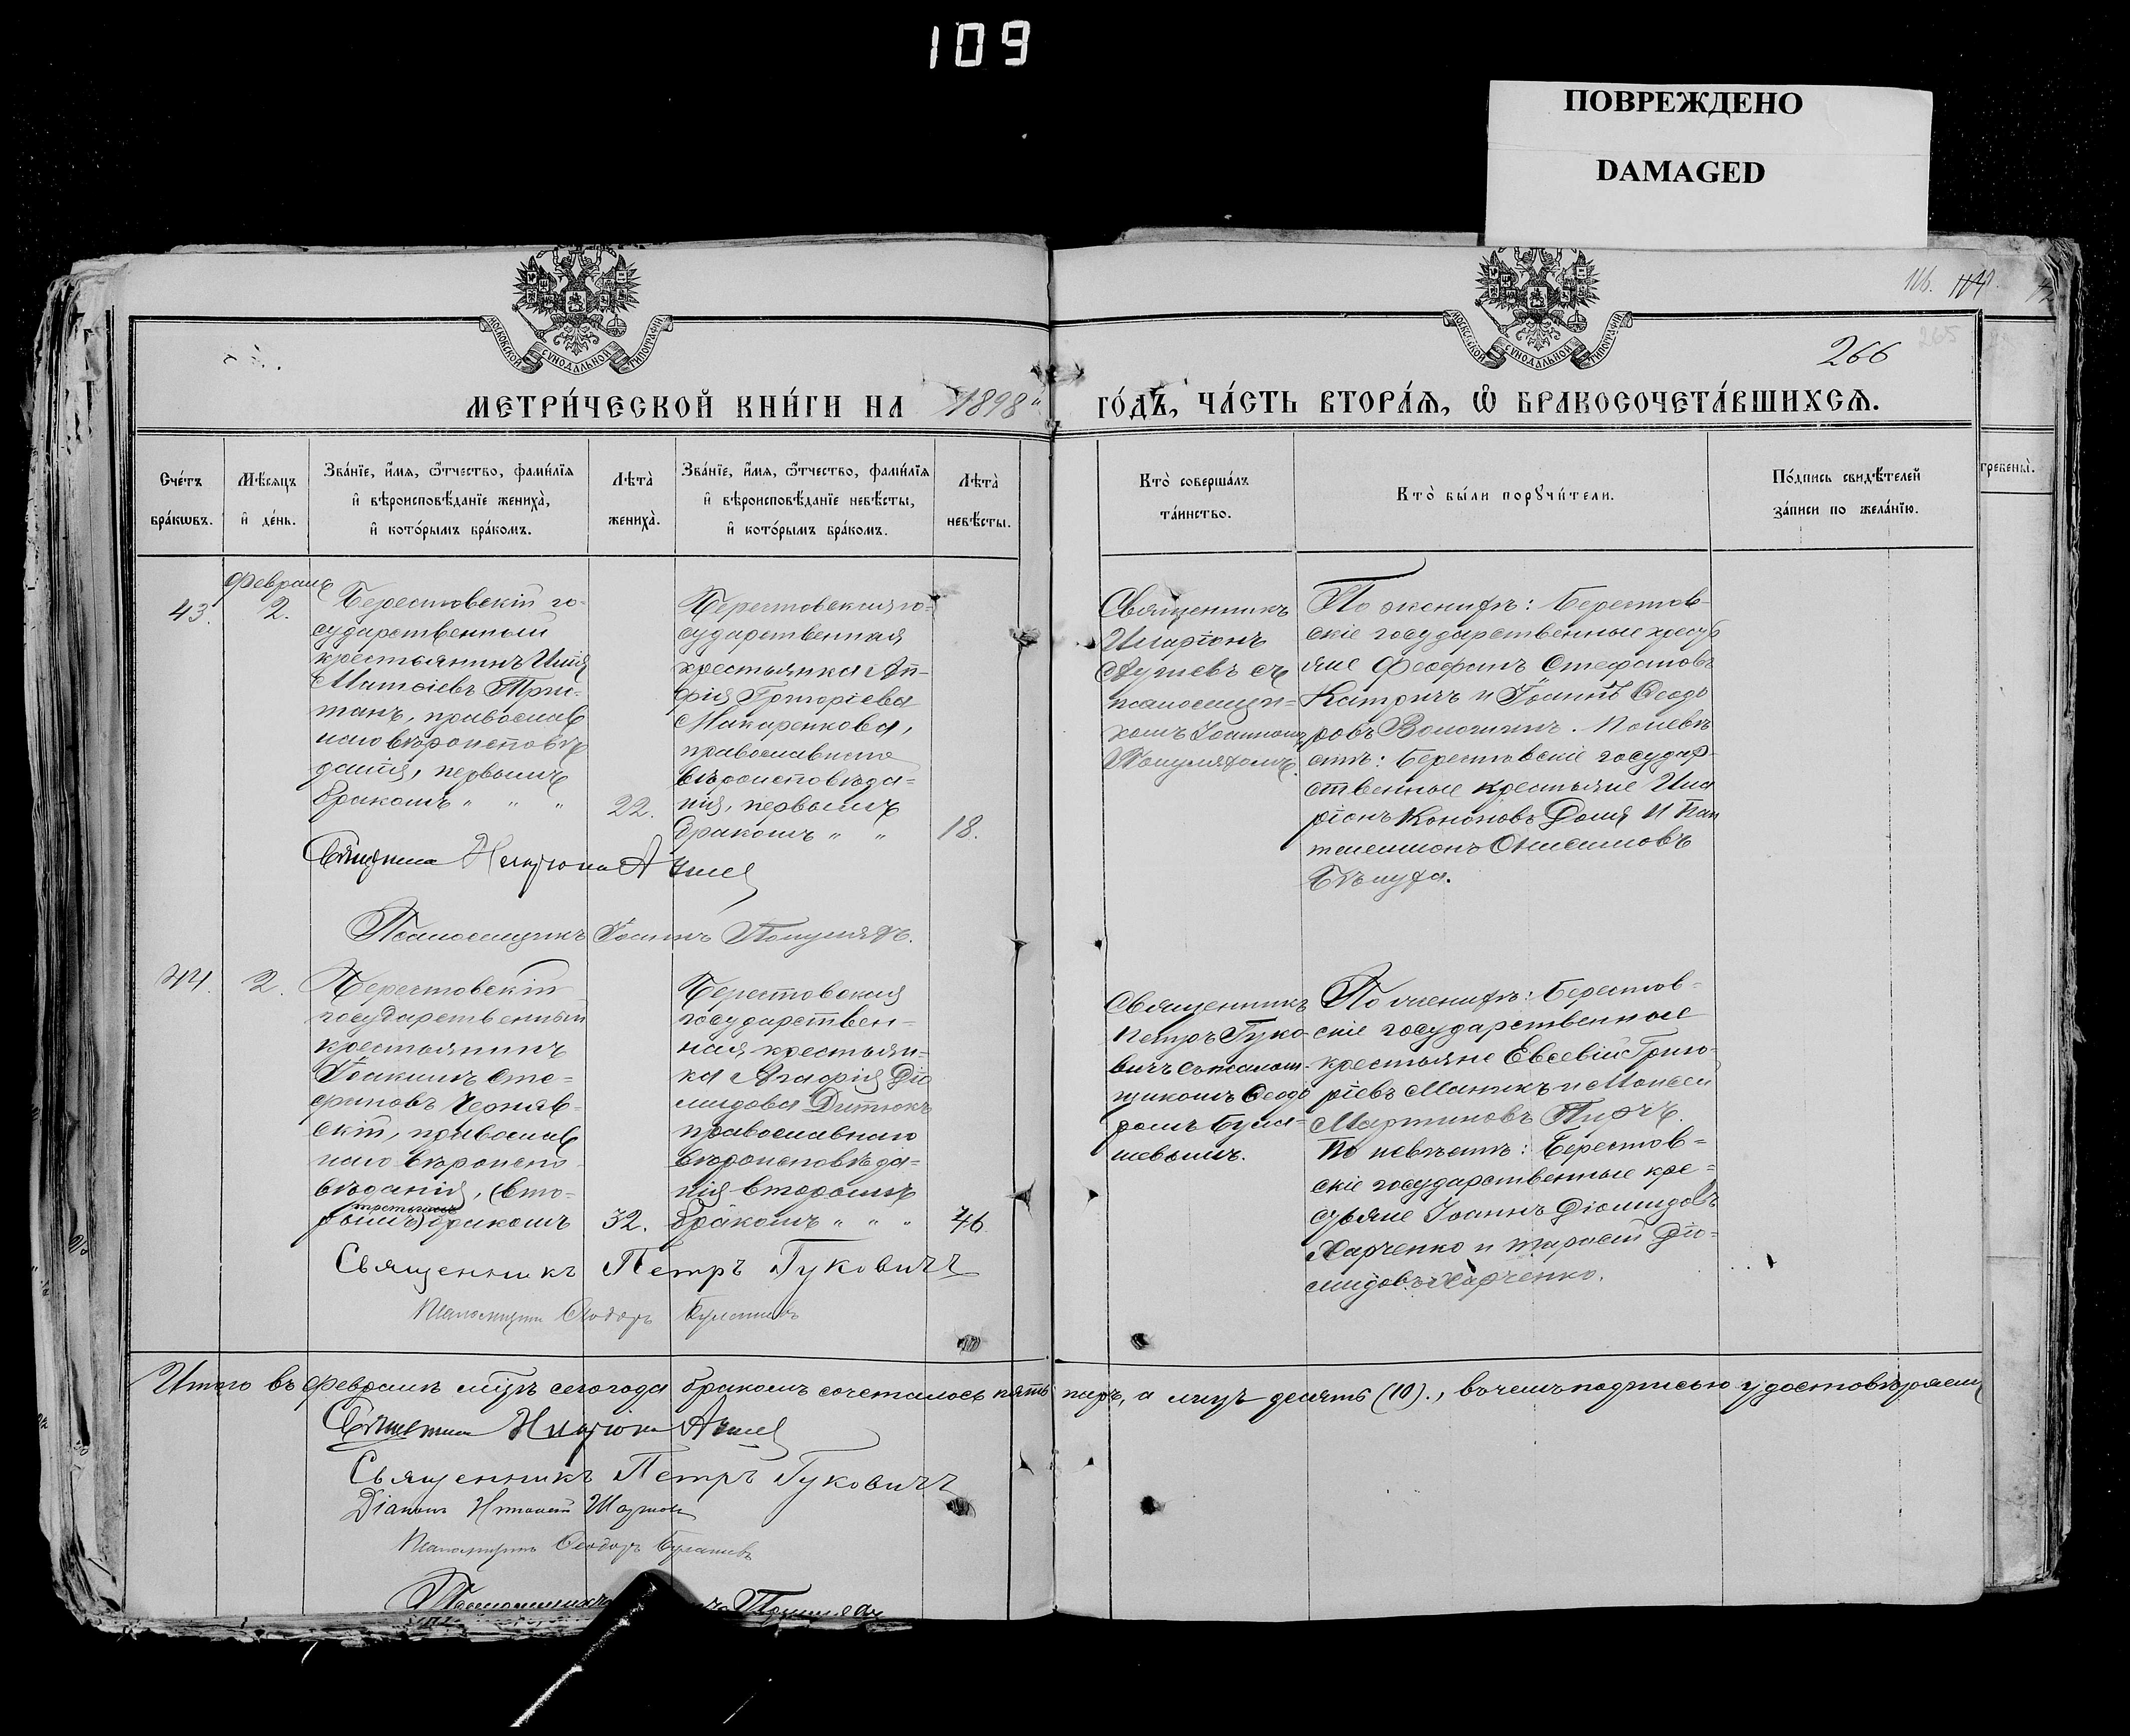 109
ПОВРЕЖДЕНО
DAMAGED
МОСКОВСКОЙ СѴНОДАЛЬНОЙ ТИПОГРАФІИ
МОСКОВСКОЙ СѴНОДАЛЬНОЙ ТИПОГРАФІИ
116.
265
266
МЕТРИ́ЧЕСКОЙ КНИ́ГИ НА 1898
ГО́ДЪ, ЧА́СТЬ ВТОРА́Ѧ, Ѽ БРАКОСОЧЕТА́ВШИХСѦ.
Сче́тъ
бра́кѡвъ.
Мѣ́сяцъ
и҆ де́нь.
Зва́нїе, и҆́мѧ, ѻ҆́тчество, фами́лїѧ
и҆ вѣроисповѣ́данїе жениха̀,
и҆ кото́рымъ бра́комъ.
Лѣта̀
жениха̀.
Зва́нїе, и҆́мѧ, ѻ҆́тчество, фами́лїѧ
и҆ вѣроисповѣ́данїе невѣ́сты,
и҆ кото́рымъ бра́комъ.
Лѣта̀
невѣ́сты.
Кто̀ соверша́лъ
та́инство.
Кто̀ бы́ли порꙋчи́тели.
По́дпись свидѣ́телей
за́писи по жела́нїю.
гребены̀.
Февраль
43.
2.
Берестовскій го-
сударственный
крестьянинъ Илія
Матѳіевъ
танъ, православ
наго вѣроисповѣ
данія, первымъ
бракомъ " " "
22.
Берестовская го-
сударственная
крестьянка Ап-
фія Григоріева
Макаренкова,
православнаго
вѣроисповѣда-
нія, первымъ
бракомъ " "
18.
Священникъ
Иларіонъ
съ
псаломщи-
комъ Іоанномъ
По женихѣ: Берестов-
скіе государственные кресть
яне Феофанъ Стефановъ
Катричъ и Іоаннъ Ѳеодо
ровъ Волошинъ. По невѣ
стѣ: Берестовскіе государ-
ственные крестьяне Ила
ріонъ Кононовъ Доля и Пан
телеимонъ Онисимовъ
Бѣлуха.
Священникъ
Псаломщикъ Іоаннъ
44.
2.
Берестовскій
государственный
крестьянинъ
Іоакимъ Сте-
фановъ Черняв-
скій, православ
наго вѣроиспо-
вѣданія, (вто-
третьимъ
рымъ) бракомъ
32.
Берестовская
государствен-
ная крестьян-
ка Агафія Діо
мидова Дитюкъ
православнаго
вѣроисповѣда-
нія вторымъ
бракомъ " " "
46
Священникъ
Петръ Гуко-
вичъ съ псалом-
щикомъ Ѳеодо
ромъ Була-
шевымъ.
По женихѣ: Берестов-
скіе государственные
крестьяне Евсевій Григо-
ріевъ Маникъ и Моисей
Мартиновъ
По невѣстѣ: Берестов-
скіе государственные кре-
стьяне Іоаннъ Діомидовъ
Харченко и Тарасій Діо-
мидовъ Харченко.
Священникъ Петръ Гуковичъ
Псаломщикъ Ѳеодоръ Булашевъ
Итого въ Февралѣ мѣцѣ сего года бракомъ сочеталось пять паръ, а лицъ десять (10)., въ чемъ подписью удостовѣряемъ
Священникъ
Священникъ Петръ Гуковичъ
Діаконъ
Псаломщикъ Ѳеодоръ Булашевъ
Псаломщикъ